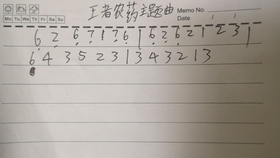 王者农药主题曲
Memo No.
Mo Tu We Th Fr Sa Su
Date
6 2 6 7 1 7 6 1 6 2 6 2 1 2 3 1
6 4 3 5 2 3 1 3 4 3 2 1 3